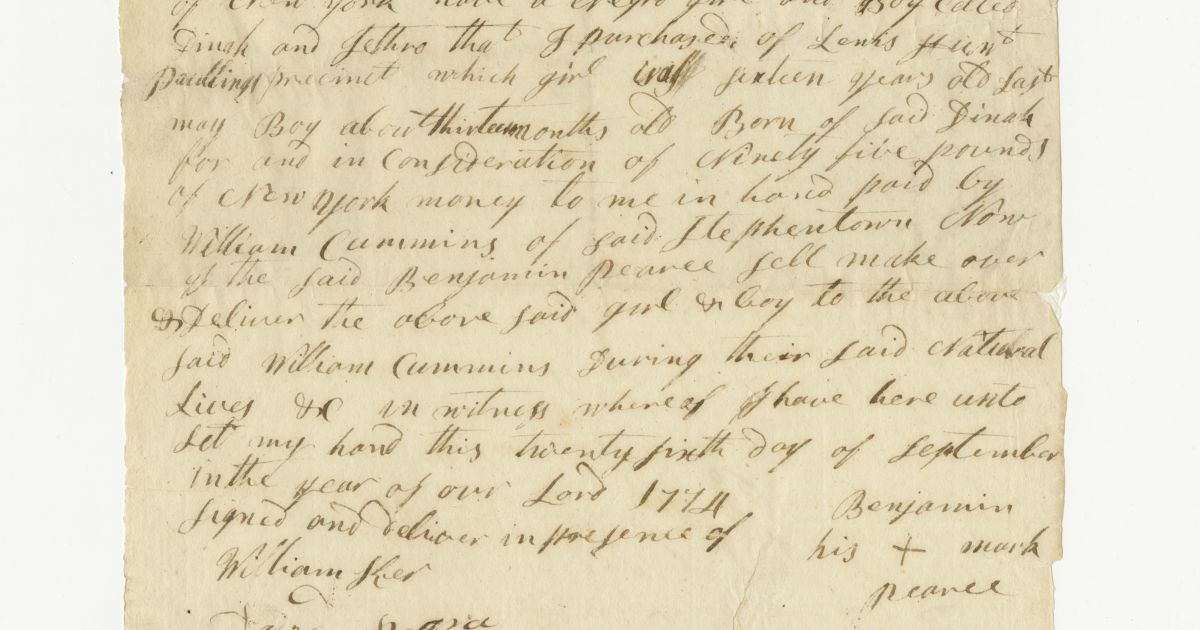 of New York have a Negro girl and Boy Called
Dinah and Jethro that I purchased of Lewis Hunt
Pawlings precinct which girl was sixteen years old Last
may Boy about thirteen months old Born of said Dinah
for and in Consideration of Ninety five pounds
of New york money to me in hand paid by
William Cummins of said Stephentown Now
I the said Benjamin Pearce sell make over
& Deliver the above said girl & boy to the above
said William Cummins During their said Natural
Lives &c in witness whereof I have here unto
set my hand this twenty sixth day of september
in the year of our Lord 1774
signed and deliver in presence of
William
Benjamin
his + mark
Pearce